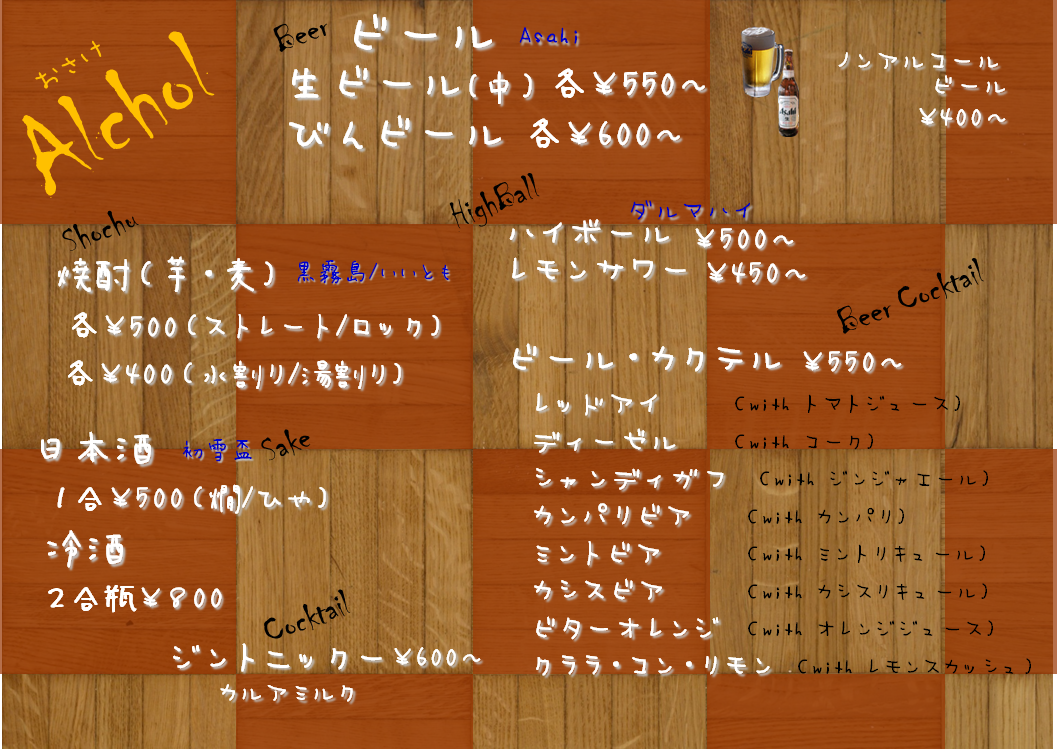 おさけ
Alchol
Beer ビール Asahi
生ビール(中) 各¥550～
びんビール 各¥600～
Asahi
ノンアルコール
ビール
¥400～
Shochu
焼酎(芋・麦) 黒霧島/いいとも
各¥500(ストレート/ロック)
各¥400(水割り/湯割り)
日本酒 初雪盃 Sake
1合¥500(燗/ひや)
冷酒
2合瓶¥800
Cocktail
ジントニック－¥600～
カルアミルク
HighBall
ダルマハイ
ハイボール ¥500～
レモンサワー ¥450～
Beer Cocktail
ビール・カクテル ¥550～
レッドアイ (with トマトジュース)
ディーゼル (with コーク)
シャンディガフ (with ジンジャエール)
カンパリビア (with カンパリ)
ミントビア (with ミントリキュール)
カシスビア (with カシスリキュール)
ビターオレンジ (with オレンジジュース)
クララ・コン・リモン (with レモンスカッシュ)